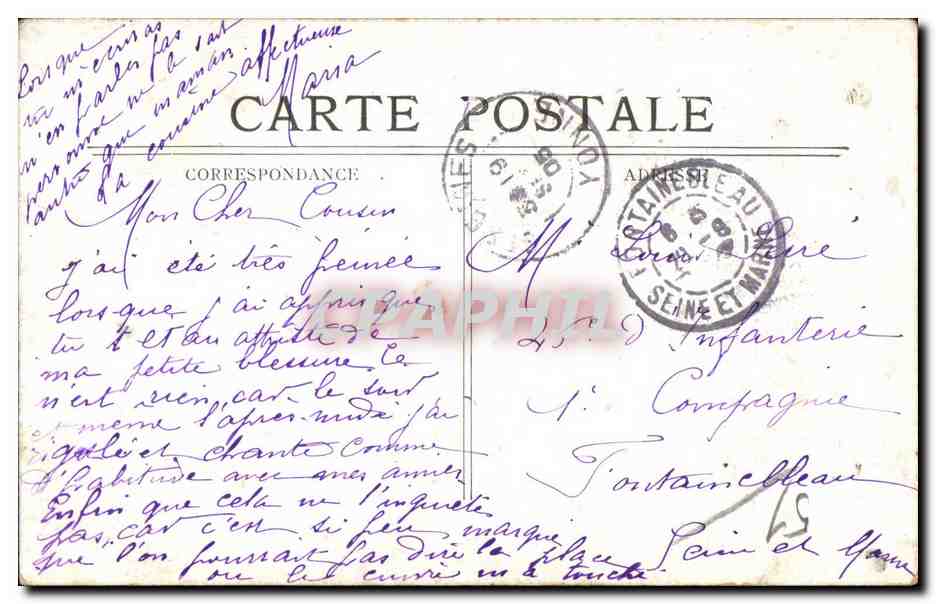 CARTE POSTALE
CORRESPONDANCE
ADRESSE
Mon Cher Cousin
j'ai été très peinée
lorsque j'ai appris que
tu t'étais attristé de
ma petite blessure. Ce
n'est rien car le soir
et même l'après-midi j'ai
et chanté comme
d'habitude avec mes amies
Enfin que cela ne t'inquiète
pas, car c'est si peu marqué
que l'on pourrait pas dire la place
ou le cuivre m'a touché.
Lorsque
tu m'écriras
n'en parles pas
personne ne le sait
autre que maman
Ta cousine affectueuse
Maria
M Louis
d'Infanterie
1e Compagnie
Fontainebleau
Seine et Marne
51
YONNE
19
05
FONTAINEBLEAU
SEINE ET MARNE
CPAPHIL